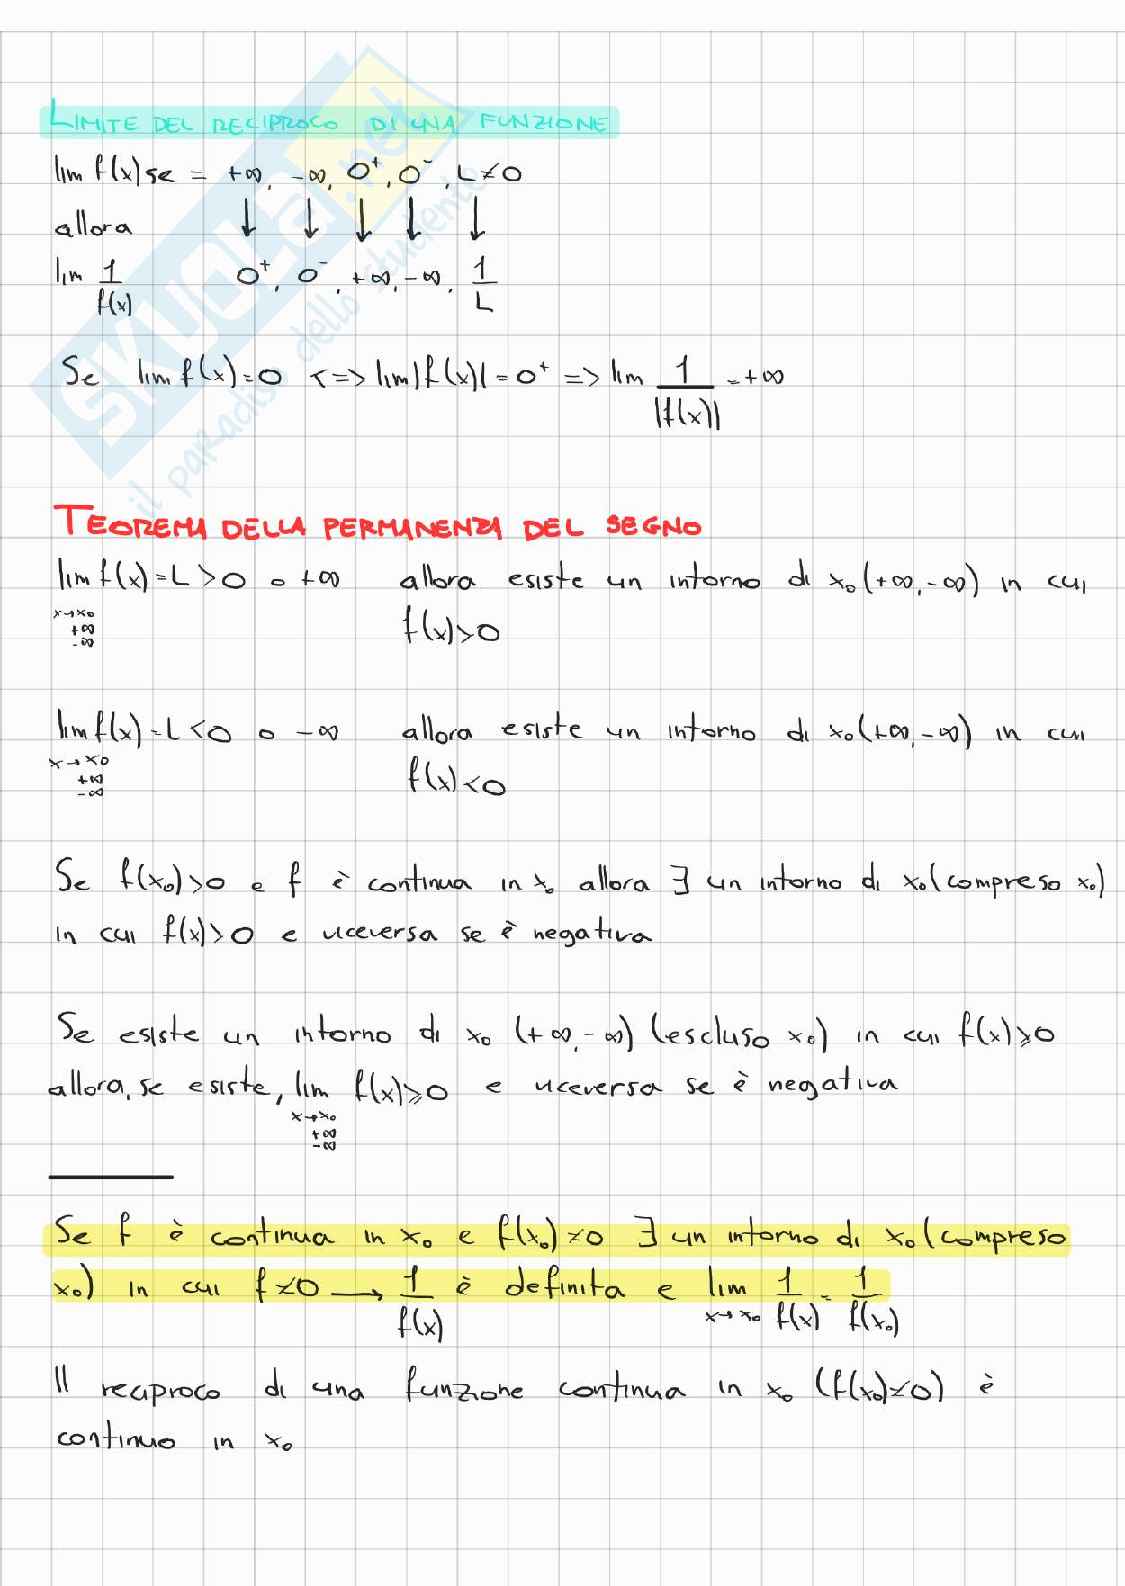 LIMITE DEL RECIPROCO DI UNA FUNZIONE
lim f(x) se = +∞, -∞, 0⁺, 0⁻, L≠0
allora ↓ ↓ ↓ ↓ ↓
lim 1/f(x) 0⁺, 0⁻, +∞, -∞, 1/L
Se lim f(x)=0 <=> lim|f(x)|=0⁺ => lim 1/|f(x)| = +∞
TEOREMA DELLA PERMANENZA DEL SEGNO
lim f(x)=L>0 o +∞ allora esiste un intorno di x₀(+∞,-∞) in cui
x→x₀
+∞
-∞
f(x)>0
lim f(x)=L<0 o -∞ allora esiste un intorno di x₀(+∞,-∞) in cui
x→x₀
+∞
-∞
f(x)<0
Se f(x₀)>0 e f è continua in x₀ allora ∃ un intorno di x₀(compreso x₀)
in cui f(x)>0 e viceversa se è negativa
Se esiste un intorno di x₀ (+∞,-∞) (escluso x₀) in cui f(x)≥0
allora, se esiste, lim f(x)≥0 e viceversa se è negativa
x→x₀
+∞
-∞
Se f è continua in x₀ e f(x₀)≠0 ∃ un intorno di x₀(compreso
x₀) in cui f≠0 → 1/f(x) è definita e lim x→x₀ 1/f(x) = 1/f(x₀)
Il reciproco di una funzione continua in x₀ (f(x₀)≠0) è
continuo in x₀
SKUOLA.net
il paradiso dello studente